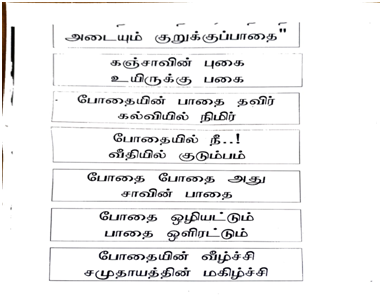 அடையும் குறுக்குப்பாதை"
கஞ்சாவின் புகை
உயிருக்கு பகை
போதையின் பாதை தவிர்
கல்வியில் நிமிர்
போதையில் நீ..!
வீதியில் குடும்பம்
போதை போதை அது
சாவின் பாதை
போதை ஒழியட்டும்
பாதை ஒளிரட்டும்
போதையின் வீழ்ச்சி
சமுதாயத்தின் மகிழ்ச்சி